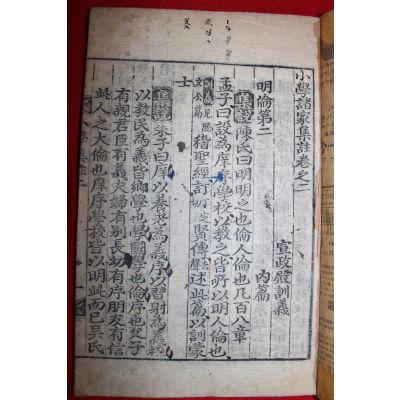 小學諸家集註卷之二
宣政殿訓義
內篇
明倫第二
陳氏曰明明之也倫人倫也凡百八章
孟子曰設為庠序學校以教之皆所以明人倫也
稽聖經訂賢傳述此篇以訓蒙
士
朱子曰庠以養老為義序以習射為義校
以教民為義皆鄉學也學國學也倫序也父子
有親君臣有義夫婦有別長幼有序朋友有信
此人之大倫也庠序學校皆以明此而已吳氏